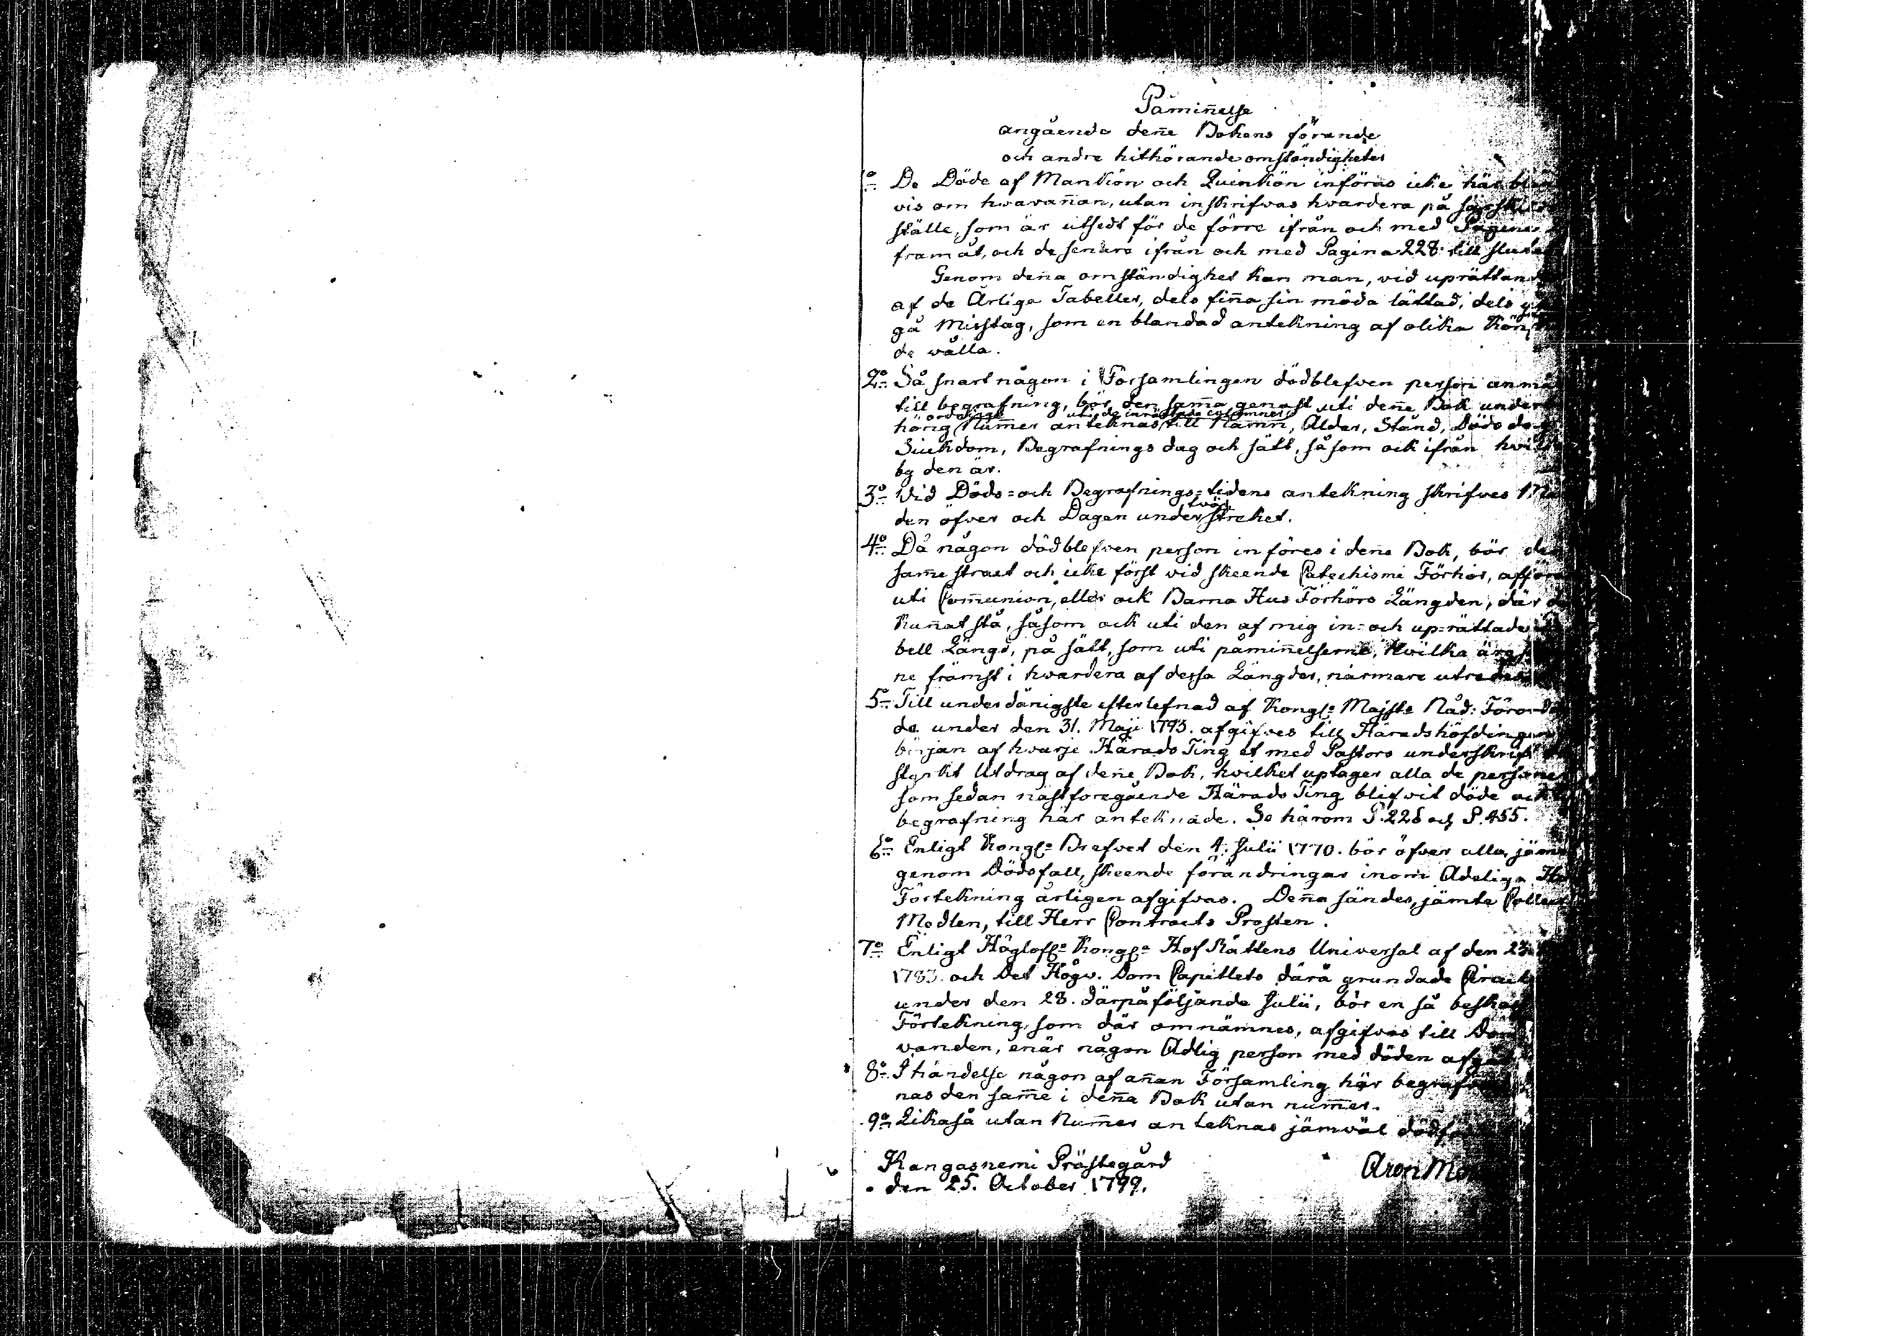 Påmin̄else
angående den̄e Bokens förande
och andre hithörande omständigheter
1o De Döde af Mankön och Quinkön införas icke här
vis om hwaran̄an, utan inskrifvas hvardera på särskilt
ställe, som är utsedt för de förre ifrån och med Pagina
framåt, och de senare ifrån och med Pagina 228. till slutet
Genom den̄a omständighet kan man, vid uprättande
af de Årliga Tabeller, dels fin̄a sin möda lättad, dels
gå Misstag, som en blandad antekning af olika Kön
de vålla.
2o Så snart någon i Församlingen dödblefven person anmäl
till begrafning, bör den sam̄a genast uti den̄e Bok under
ordentligt uti de inrättade colomner
hörig Num̄er anteknas till Namn, Ålder, Stånd, Döds dag
Siukdom, Begrafnings dag och sätt, såsom ock ifrån hvil
by den är.
3o Vid Döds- och Begrafnings-tidens antekning skrifves Må
den öfver och Dagen under tvär
strecket.
4o Då någon dödblefven person införes i den̄e Bok, bör de
sam̄e straxt och icke först vid skeende Catechismi Förhör, afför
uti Com̄union, eller ock Barna Hus Förhörs Längden, där
kun̄at stå, såsom ock uti den af mig in- och up-rättade
bell Längd, på sätt, som uti påmin̄elserne, hvilka äro
ne främst i hvardera af dessa Längder, närmare utredes
5o Till underdånigste efterlefnad af Kongl. Majsts Nåd: Förord
de under den 31. Maji 1793. afgifves till Häradshöfdingen
början af hvarje Härads Ting et med Pastors underskrift
styrkt Utdrag af den̄e Bok, hvilket uptager alla de personer
som sedan nästforegående Härads Ting blifvit döde och
begrafning här anteknade. Se härom P. 228 och P. 455.
6o Enligt Kongl. Brefvet den 4. Julii 1770. bör öfver alla, jäm
genom Dödsfall, skeende förändringar inom Adeliga
Förtekning årligen afgifvas. Den̄a sändes, jämte Collect
Medlen, till Herr Contracts Prosten.
7o Enligt Höglofl. Kongl. Hof Rättens Universal af den 23
1783. och Det Högv. Dom Capitlets därå grundade Circul
under den 28. därpåföljande Julii, bör en så beskaff
Förtekning, som där omnämnes, afgifvas till Dom
vanden, enär någon Adlig person med döden afgå
8o I händelse någon af an̄an Församling här begrafves
nas den sam̄e i den̄a Bok utan num̄er.
9o Likaså utan Num̄er anteknas jämväl dödfö
Kangasnemi Prästegård
den 25. October 1799.
Aron